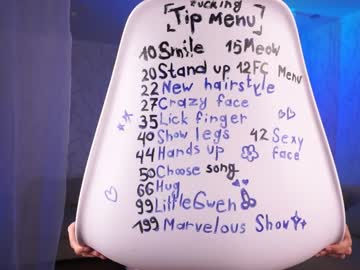 Fucking
[Tip Menu]
10 Smile 15 Meow
20 Stand up 12 FC Menu
22 New hairstyle
27 Crazy face
35 Lick finger
40 Show legs 42 Sexy face
44 Hands up
50 Choose song
66 Hug
99 Little Gweh
199 Marvelous Show